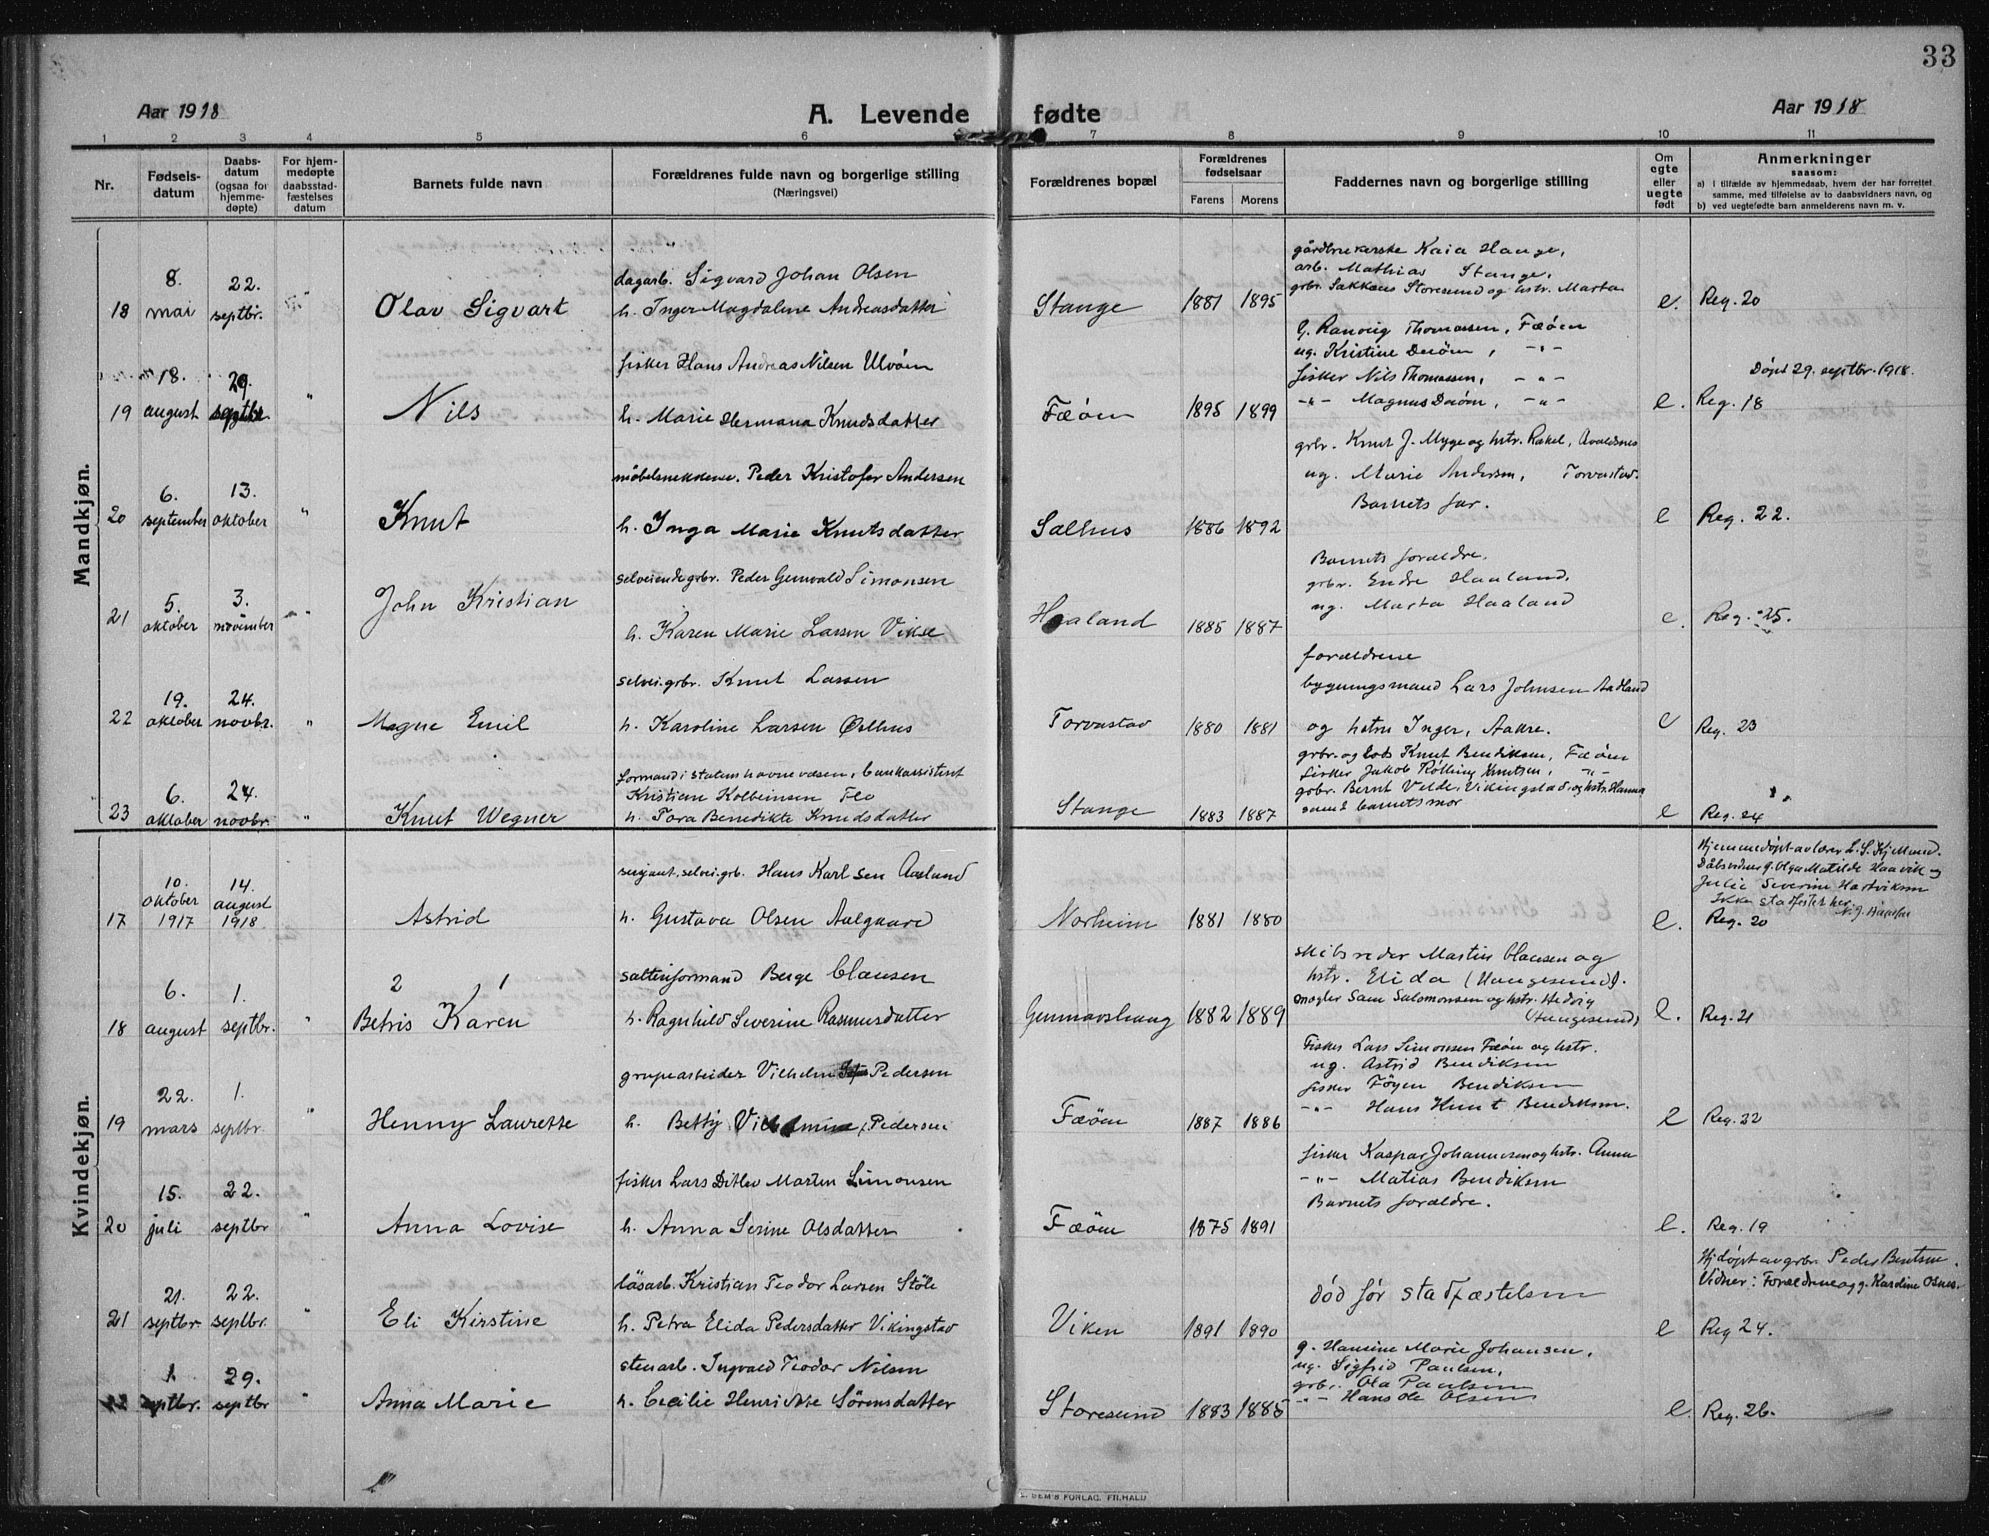 33
Aar 1918 A. Levende fødte Aar 1918
1 2 3 4 5 6 7 8 9 10 11
Nr.
Fødsels-
datum
Daabs-
datum
(ogsaa for
hjemme-
døpte)
For hjem-
medøpte
daabsstad-
fæstelses
datum
Barnets fulde navn
Forældrenes fulde navn og borgerlige stilling
(Næringsvei)
Forældrenes bopæl
Forældrenes
fødselsaar
Farens Morens
Faddernes navn og borgerlige stilling
Om
egte
eller
uegte
født
Anmerkninger
saasom:
a) i tilfælde av hjemmedaab, hvem der har forrettet
samme, med tilføielse av to daabsvidners navn, og
b) ved uegtefødte barn anmelderens navn m. v.
Mandkjøn.
18
8.
mai
22.
septbr.
"
Olav Sigvart
dagarb. Sigvard Johan Olsen
h. Inger Magdalene Andreasdatter
Stange
1881 1895
Kaia Hauge,
arb. Mathias Stange,
grbr. Storesund og hstr. Marta
e.
Reg. 20
19
18.
august
29.
septbr
"
Nils
fisker Hans Andreas Nilsen Ulvøen
h. Marie Hermana Knudsdatter
Fæøen
1895 1899
g. Ranveig Thomassen, Fæøen
ug. Kristine
fisker Nils Thomassen, - " -
- " - Magnus - " -
e.
Døpt 29. septbr. 1918.
Reg. 18
20
6.
september
13.
oktober
"
Knut
møbelsnekker. Peder Kristofer Andersen
h. Inga Marie Knutsdatter
Salhus
1886 1892
grbr. Knut J. Myge og hstr. Rakel, Avaldsnes
ug. Marie Andersen, Torvastad.
Barnets far.
e
Reg. 22.
21
5.
oktober
3.
november
"
John Kristian
selveiende grbr. Peder Gunvald Simonsen
h. Karen Marie Larsen Vikse
Haaland
1885 1887
Barnets forældre.
grbr. Endre Haaland.
ug. Marta Haaland
e.
Reg. 25.
22
19.
oktober
24.
novbr.
"
Magne Emil
selvei. grbr. Knut Larsen
h. Karoline Larsen Østhus
Torvastad
1880 1881
forældrene
bygningsmand Lars Johnsen Aadland
og hstru Inger, Aakre.
e
Reg. 23
23
6.
oktober
24.
novbr.
"
Knut Wegner
formand i statens havnevæsen,
Kristian Kolbeinsen Flo
h. Tora Benedikte Knudsdatter
Stange
1883 1887
grbr. og lods Knut Bendiksen, Fæøen
fisker Jakob Røthing Knutsen, - " -
grbr. Bernt Velde, Vikingstad, og hstr. Hanna
samt barnets mor
e
Reg. 24
Kvindekjøn.
17
10.
oktober
1917
14.
august
1918
Astrid
serjant, selvei. grb. Hans Karlsen Aasland
h. Gustava Olsen Aalgaard
Norheim
1881 1880
e.
Hjemmedøpt av lærer L. S.
Dåbsvidner g. Olga Matilde Haavik og
Julie Severine Hartviksen
Ikke stadfestet her.
Reg. 20
18
6.
august
1.
septbr.
"
2 1
Betris Karen
salterformand Berge Clausen
h. Ragnhild Severine Rasmusdatter
Gunnarshaug
1882 1889
skibsreder Martin Clausen og
hstr. Elida (Haugesund).
mægler Sam Salomonsen og hstr. Hedvig
(Haugesund)
e.
Reg. 21
19
22.
mars
1.
septbr.
"
Henny Laurette
grubearbeider Vilhelm Pedersen
h. Betty Vilhelmine Pedersen
Fæøen
1887 1886
Fisker Lars Simonsen Fæøen og hstr.
ug. Astrid Bendiksen
fisker Føyen Bendiksen
- " - Hans Knut Bendiksen.
e
Reg. 22
20
15.
juli
22.
septbr
Anna Lovise
fisker Lars Ditlev Morten Simonsen
h. Anna Serine Olsdatter
Fæøen
1875 1891
fisker Kaspar Johannesen og hstr. Anna
- " - Matias Bendiksen
Barnets forældre.
e.
Reg. 19
21
21.
septbr.
22.
septbr.
"
Eli Kirstine
løsarb. Kristian Teodor Larsen Støle
h. Petra Elida Pedersdatter Vikingstad
Viken
1891 1890
død før stadfæstelsen
e
Hj.døpt av grbr. Peder Bentsen.
Vidner: Forældrene og g. Karoline Osnes.
Reg 24.
22
1
septbr.
29.
septbr
"
Anna Marie
stenarb. Ingvald Teodor Nilsen
h. Cecilie Henrikke Sørensdatter
Storesund
1883 1885
g. Hansine Marie Johansen,
ug. Sigfrid Paulsen,
grbr. Ola Paulsen
- " - Hans Ole Olsen
e.
Reg. 26.
SEM'S FORLAG, FR.HALD